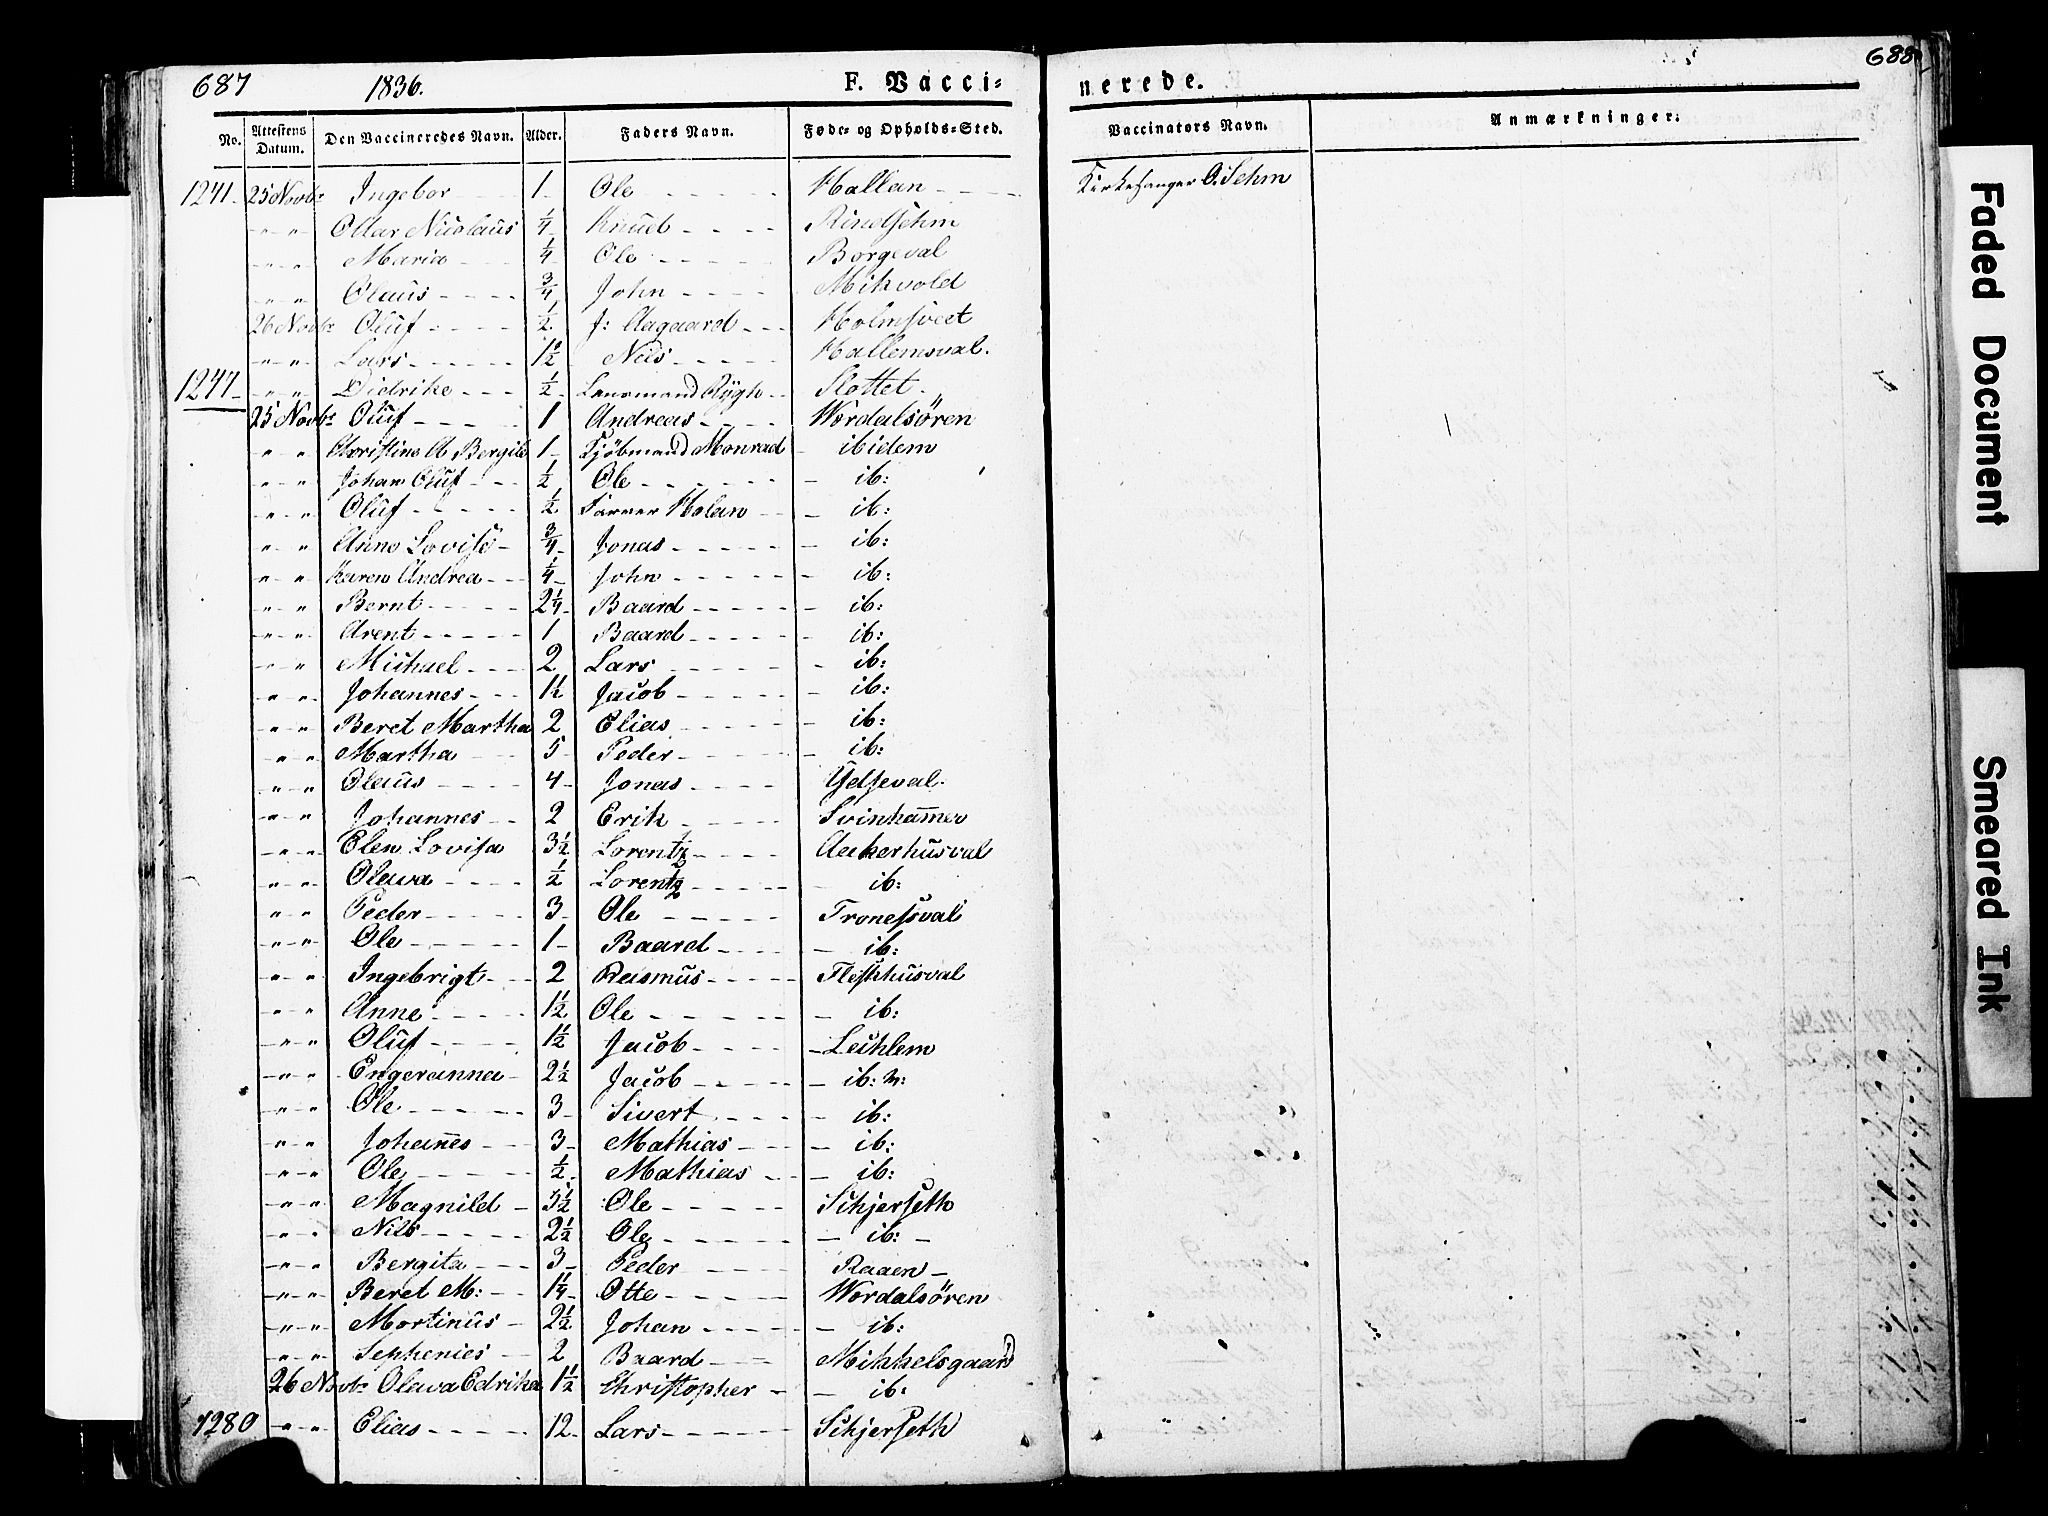 687 1836. F. Vacci- nerede. 688
No. Attestens Datum. Den Vaccineredes Navn. Alder. Faders Navn. Føde- og Opholds-Sted. Vaccinators Navn. Anmærkninger.
1241. 25 Novbr Ingebor 1 Ole Hallan Kirkesanger O. Sehm
" " Ollar Nicolaus 1/4 Knud Rindsehm
" " Maria 1/4 Ole Borgeval
" " Olaus 3/4 John Mikvold
26 Novbr Oluf 1/2 J: Aagaard Holmsveet
" " Lars 1 1/2 Nils Hallemsval.
1247 " " Didrike 1/2 Lensmand Rygh Slottet
25 Novbr Oluf 1 Andreas Wordalsören
" " Christine A Bergite 1 Kjöbmand Monrad ibidem
" " Johan Oluf 1/2 Ole ib:
" " Oluf 1/2 Farver Holan ib:
" " Anne Lovise 3/4 Jonas ib:
" " Karen Andrea 1/4 John ib:
" " Bernt 2 1/4 Baard ib:
" " Arent 1 Baard ib:
" " Michael 2 Lars ib:
" " Johannes 1 1/2 Jacob ib:
" " Beret Martha 2 Elias ib:
" " Martha 5 Peder ib:
" " Olaus 4 Jonas Ydseval
" " Johannes 2 Erik Svinham̄er
" " Elen Lovisa 3 1/2 Lorentz Aakerhusval
" " Olava 1/2 Lorentz ib:
" " Peder 3 Ole Tronesval
" " Ole 1 Baard ib:
" " Ingebrigt 2 Rasmus Fleskhusval
" " Anne 1 1/2 Ole ib:
" " Oluf 1 1/2 Jacob Leihlem
" " Engeranna 2 1/2 Jacob ib: n:
" " Ole 3 Sivert ib:
" " Johan̄es 3 Mathias ib:
" " Ole 1/2 Mathias ib:
" " Magnild 3 1/2 Ole Schjerseth
" " Nils 2 1/2 Ole ib:
" " Bergita 3 Peder Raaen
" " Beret M: 1 1/4 Otte Wordalsören
" " Mortinus 2 1/2 Johan ib:
" " Sephenies 2 Baard Mikkelsgaard
26 Novbr Olava Edrika 1 1/2 Christopher ib:
1280 " " Elias 12 Lars Schjerseth
Faded Document
Smeared Ink